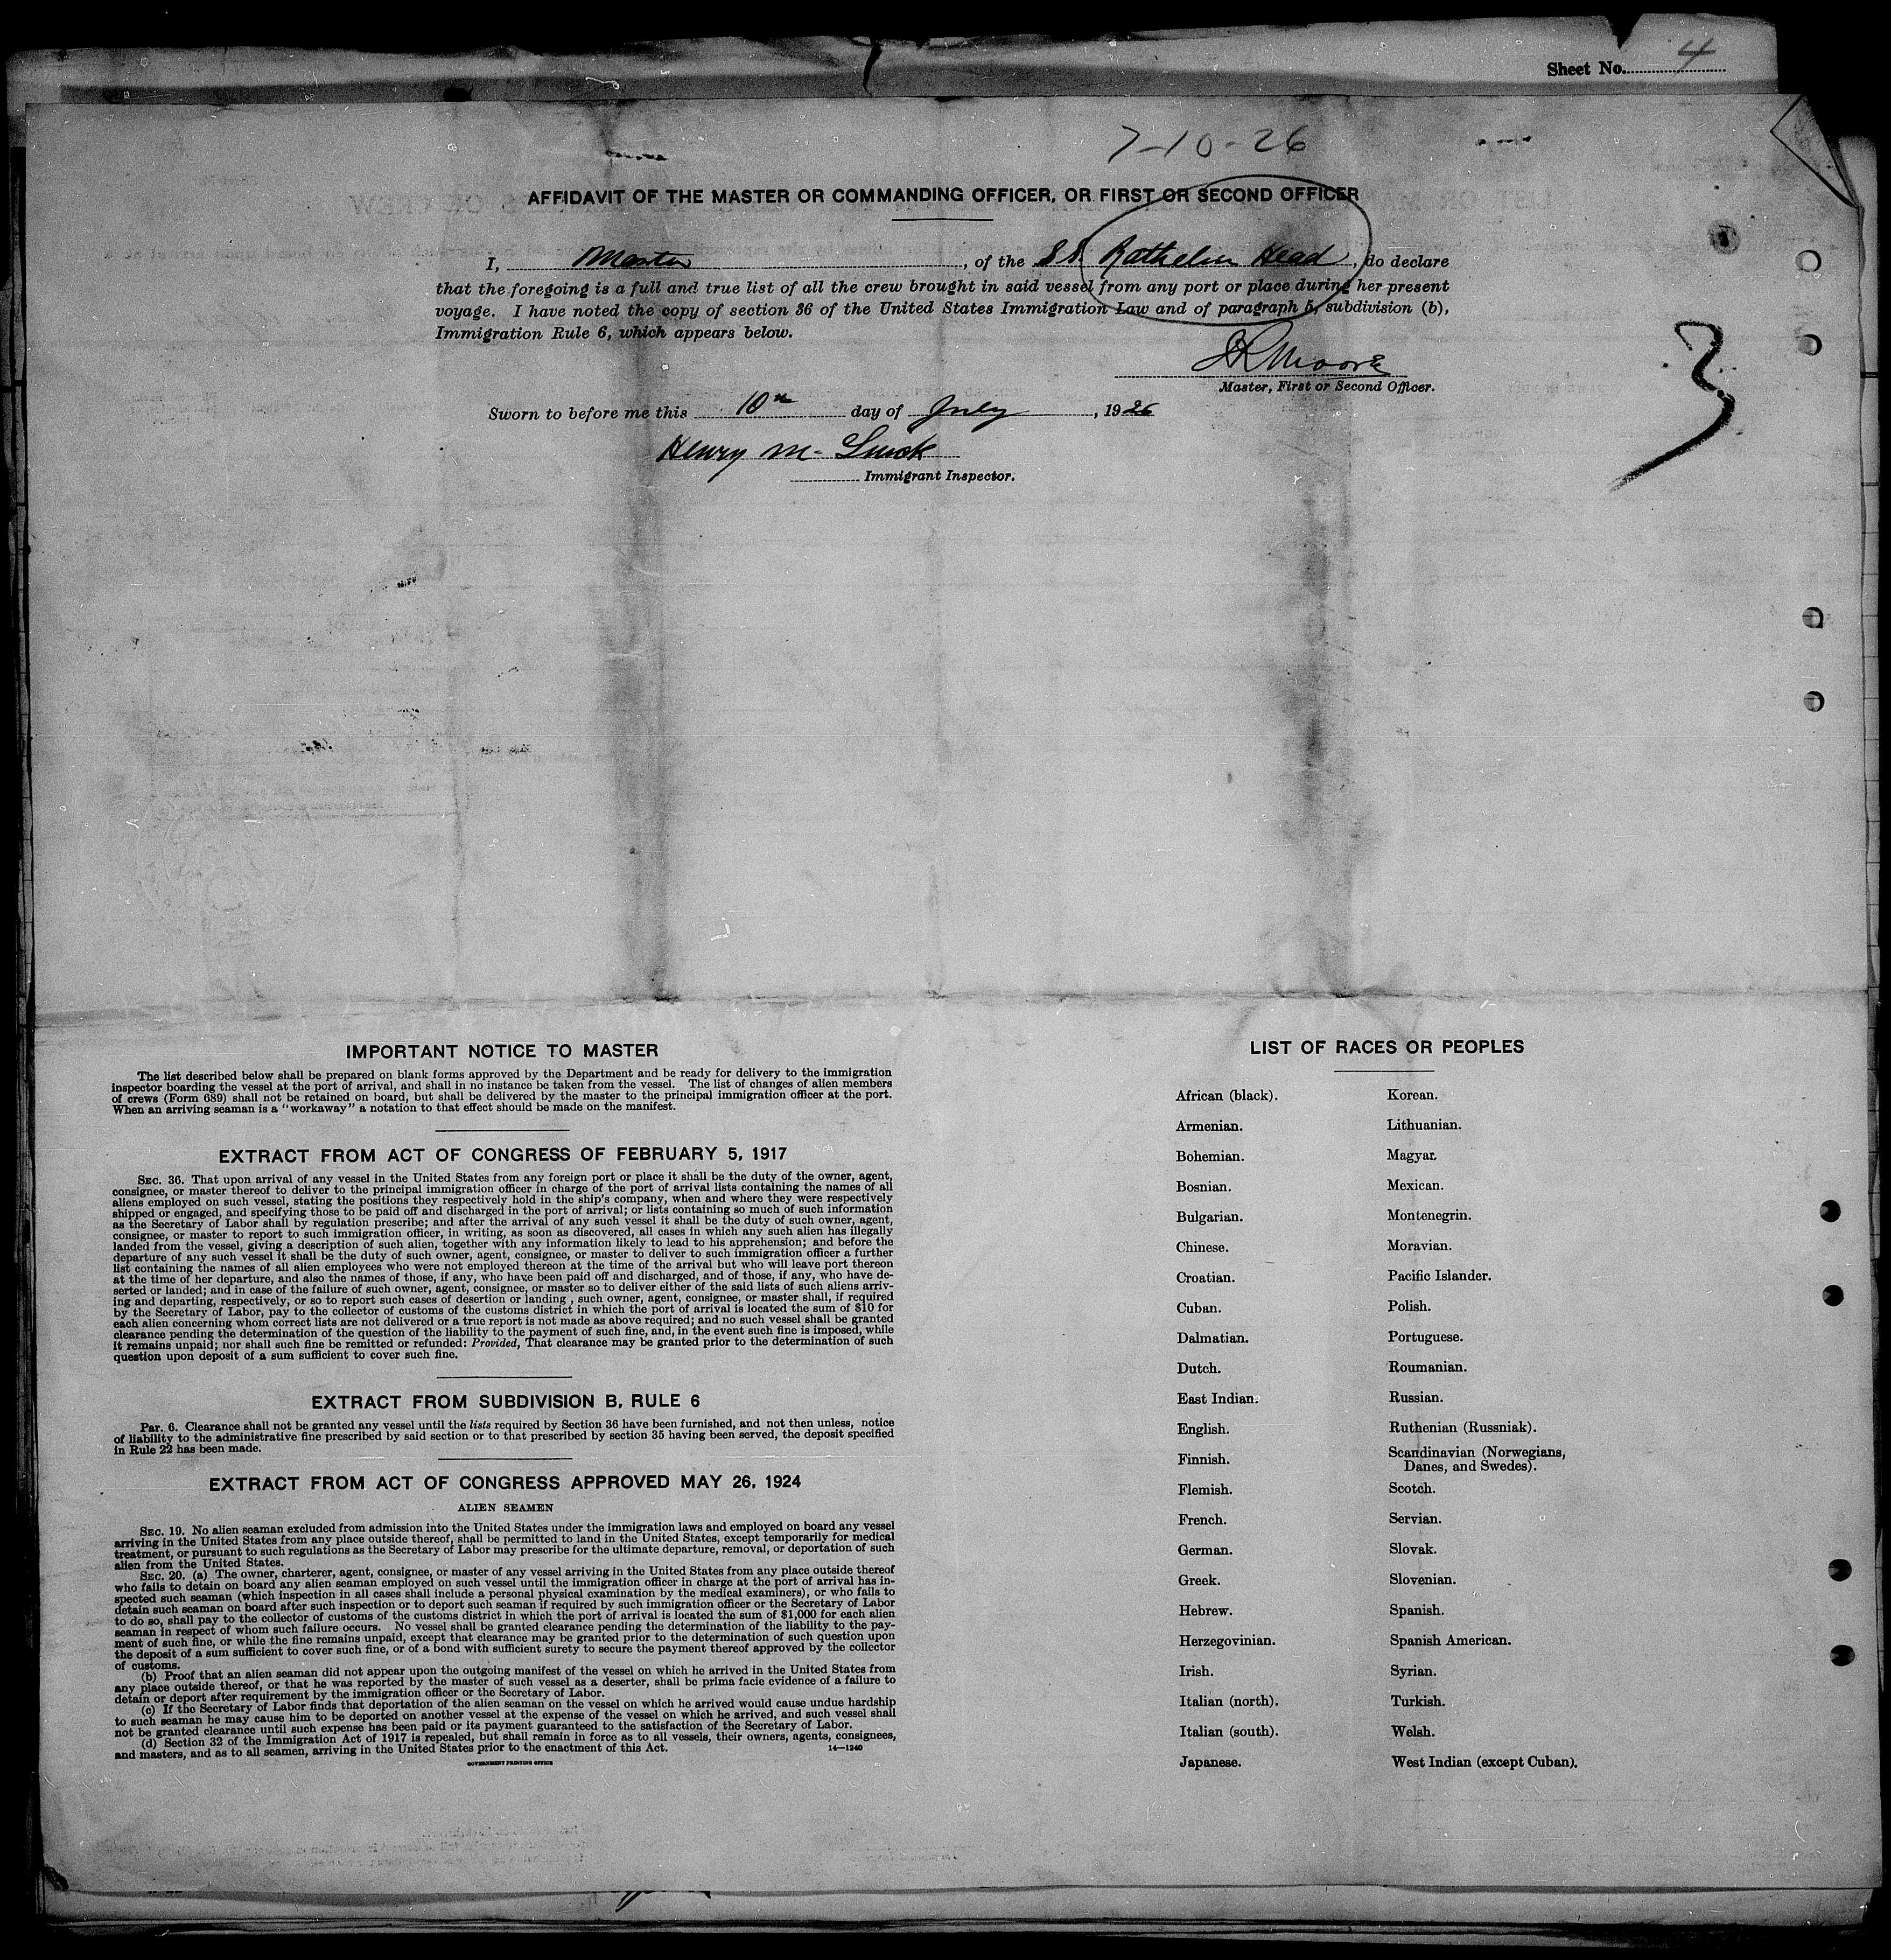 Sheet No. 4
7-10-26
AFFIDAVIT OF THE MASTER OR COMMANDING OFFICER, OR FIRST OR SECOND OFFICER
I, Master, of the S.S. Rathelin Head, do declare
that the foregoing is a full and true list of all the crew brought in said vessel from any port or place during her present
voyage. I have noted the copy of section 36 of the United States Immigration Law and of paragraph 5, subdivision (b),
Immigration Rule 6, which appears below.
3
Moore
Master, First or Second Officer.
Sworn to before me this 10th day of July, 1926
Henry M.
Immigrant Inspector.
IMPORTANT NOTICE TO MASTER
The list described below shall be prepared on blank forms approved by the Department and be ready for delivery to the immigration
inspector boarding the vessel at the port of arrival, and shall in no instance be taken from the vessel. The list of changes of alien members
of crews (Form 689) shall not be retained on board, but shall be delivered by the master to the principal immigration officer at the port.
When an arriving seaman is a "workaway" a notation to that effect should be made on the manifest.
EXTRACT FROM ACT OF CONGRESS OF FEBRUARY 5, 1917
SEC. 36. That upon arrival of any vessel in the United States from any foreign port or place it shall be the duty of the owner, agent,
consignee, or master thereof to deliver to the principal immigration officer in charge of the port of arrival lists containing the names of all
aliens employed on such vessel, stating the positions they respectively hold in the ship's company, when and where they were respectively
shipped or engaged, and specifying those to be paid off and discharged in the port of arrival; or lists containing so much of such information
as the Secretary of Labor shall by regulation prescribe; and after the arrival of any such vessel it shall be the duty of such owner, agent,
consignee, or master to report to such immigration officer, in writing, as soon as discovered, all cases in which any such alien has illegally
landed from the vessel, giving a description of such alien, together with any information likely to lead to his apprehension; and before the
departure of any such vessel it shall be the duty of such owner, agent, consignee, or master to deliver to such immigration officer a further
list containing the names of all alien employees who were not employed thereon at the time of the arrival but who will leave port thereon
at the time of her departure, and also the names of those, if any, who have been paid off and discharged, and of those, if any, who have de-
serted or landed; and in case of the failure of such owner, agent, consignee, or master so to deliver either of the said lists of such aliens arriv-
ing and departing, respectively, or so to report such cases of desertion or landing , such owner, agent, consignee, or master shall, if required
by the Secretary of Labor, pay to the collector of customs of the customs district in which the port of arrival is located the sum of $10 for
each alien concerning whom correct lists are not delivered or a true report is not made as above required; and no such vessel shall be granted
clearance pending the determination of the question of the liability to the payment of such fine, and, in the event such fine is imposed, while
it remains unpaid; nor shall such fine be remitted or refunded: Provided, That clearance may be granted prior to the determination of such
question upon deposit of a sum sufficient to cover such fine.
EXTRACT FROM SUBDIVISION B, RULE 6
Par. 6. Clearance shall not be granted any vessel until the lists required by Section 36 have been furnished, and not then unless, notice
of liability to the administrative fine prescribed by said section or to that prescribed by section 35 having been served, the deposit specified
in Rule 22 has been made.
EXTRACT FROM ACT OF CONGRESS APPROVED MAY 26, 1924
ALIEN SEAMEN
SEC. 19. No alien seaman excluded from admission into the United States under the immigration laws and employed on board any vessel
arriving in the United States from any place outside thereof, shall be permitted to land in the United States, except temporarily for medical
treatment, or pursuant to such regulations as the Secretary of Labor may prescribe for the ultimate departure, removal, or deportation of such
alien from the United States.
SEC. 20. (a) The owner, charterer, agent, consignee, or master of any vessel arriving in the United States from any place outside thereof
who fails to detain on board any alien seaman employed on such vessel until the immigration officer in charge at the port of arrival has in-
spected such seaman (which inspection in all cases shall include a personal physical examination by the medical examiners), or who fails to
detain such seaman on board after such inspection or to deport such seaman if required by such immigration officer or the Secretary of Labor
to do so, shall pay to the collector of customs of the customs district in which the port of arrival is located the sum of $1,000 for each alien
seaman in respect of whom such failure occurs. No vessel shall be granted clearance pending the determination of the liability to the pay-
ment of such fine, or while the fine remains unpaid, except that clearance may be granted prior to the determination of such question upon
the deposit of a sum sufficient to cover such fine, or of a bond with sufficient surety to secure the payment thereof approved by the collector
of customs.
(b) Proof that an alien seaman did not appear upon the outgoing manifest of the vessel on which he arrived in the United States from
any place outside thereof, or that he was reported by the master of such vessel as a deserter, shall be prima facie evidence of a failure to
detain or deport after requirement by the immigration officer or the Secretary of Labor.
(c) If the Secretary of Labor finds that deportation of the alien seaman on the vessel on which he arrived would cause undue hardship
to such seaman he may cause him to be deported on another vessel at the expense of the vessel on which he arrived, and such vessel shall
not be granted clearance until such expense has been paid or its payment guaranteed to the satisfaction of the Secretary of Labor.
(d) Section 32 of the Immigration Act of 1917 is repealed, but shall remain in force as to all vessels, their owners, agents, consignees,
and masters, and as to all seamen, arriving in the United States prior to the enactment of this Act. 14—1240
GOVERNMENT PRINTING OFFICE
LIST OF RACES OR PEOPLES
African (black).
Armenian.
Bohemian.
Bosnian.
Bulgarian.
Chinese.
Croatian.
Cuban.
Dalmatian.
Dutch.
East Indian.
English.
Finnish.
Flemish.
French.
German.
Greek.
Hebrew.
Herzegovinian.
Irish.
Italian (north).
Italian (south).
Japanese.
Korean.
Lithuanian.
Magyar.
Mexican.
Montenegrin.
Moravian.
Pacific Islander.
Polish.
Portuguese.
Roumanian.
Russian.
Ruthenian (Russniak).
Scandinavian (Norwegians,
Danes, and Swedes).
Scotch.
Servian.
Slovak.
Slovenian.
Spanish.
Spanish American.
Syrian.
Turkish.
Welsh.
West Indian (except Cuban).